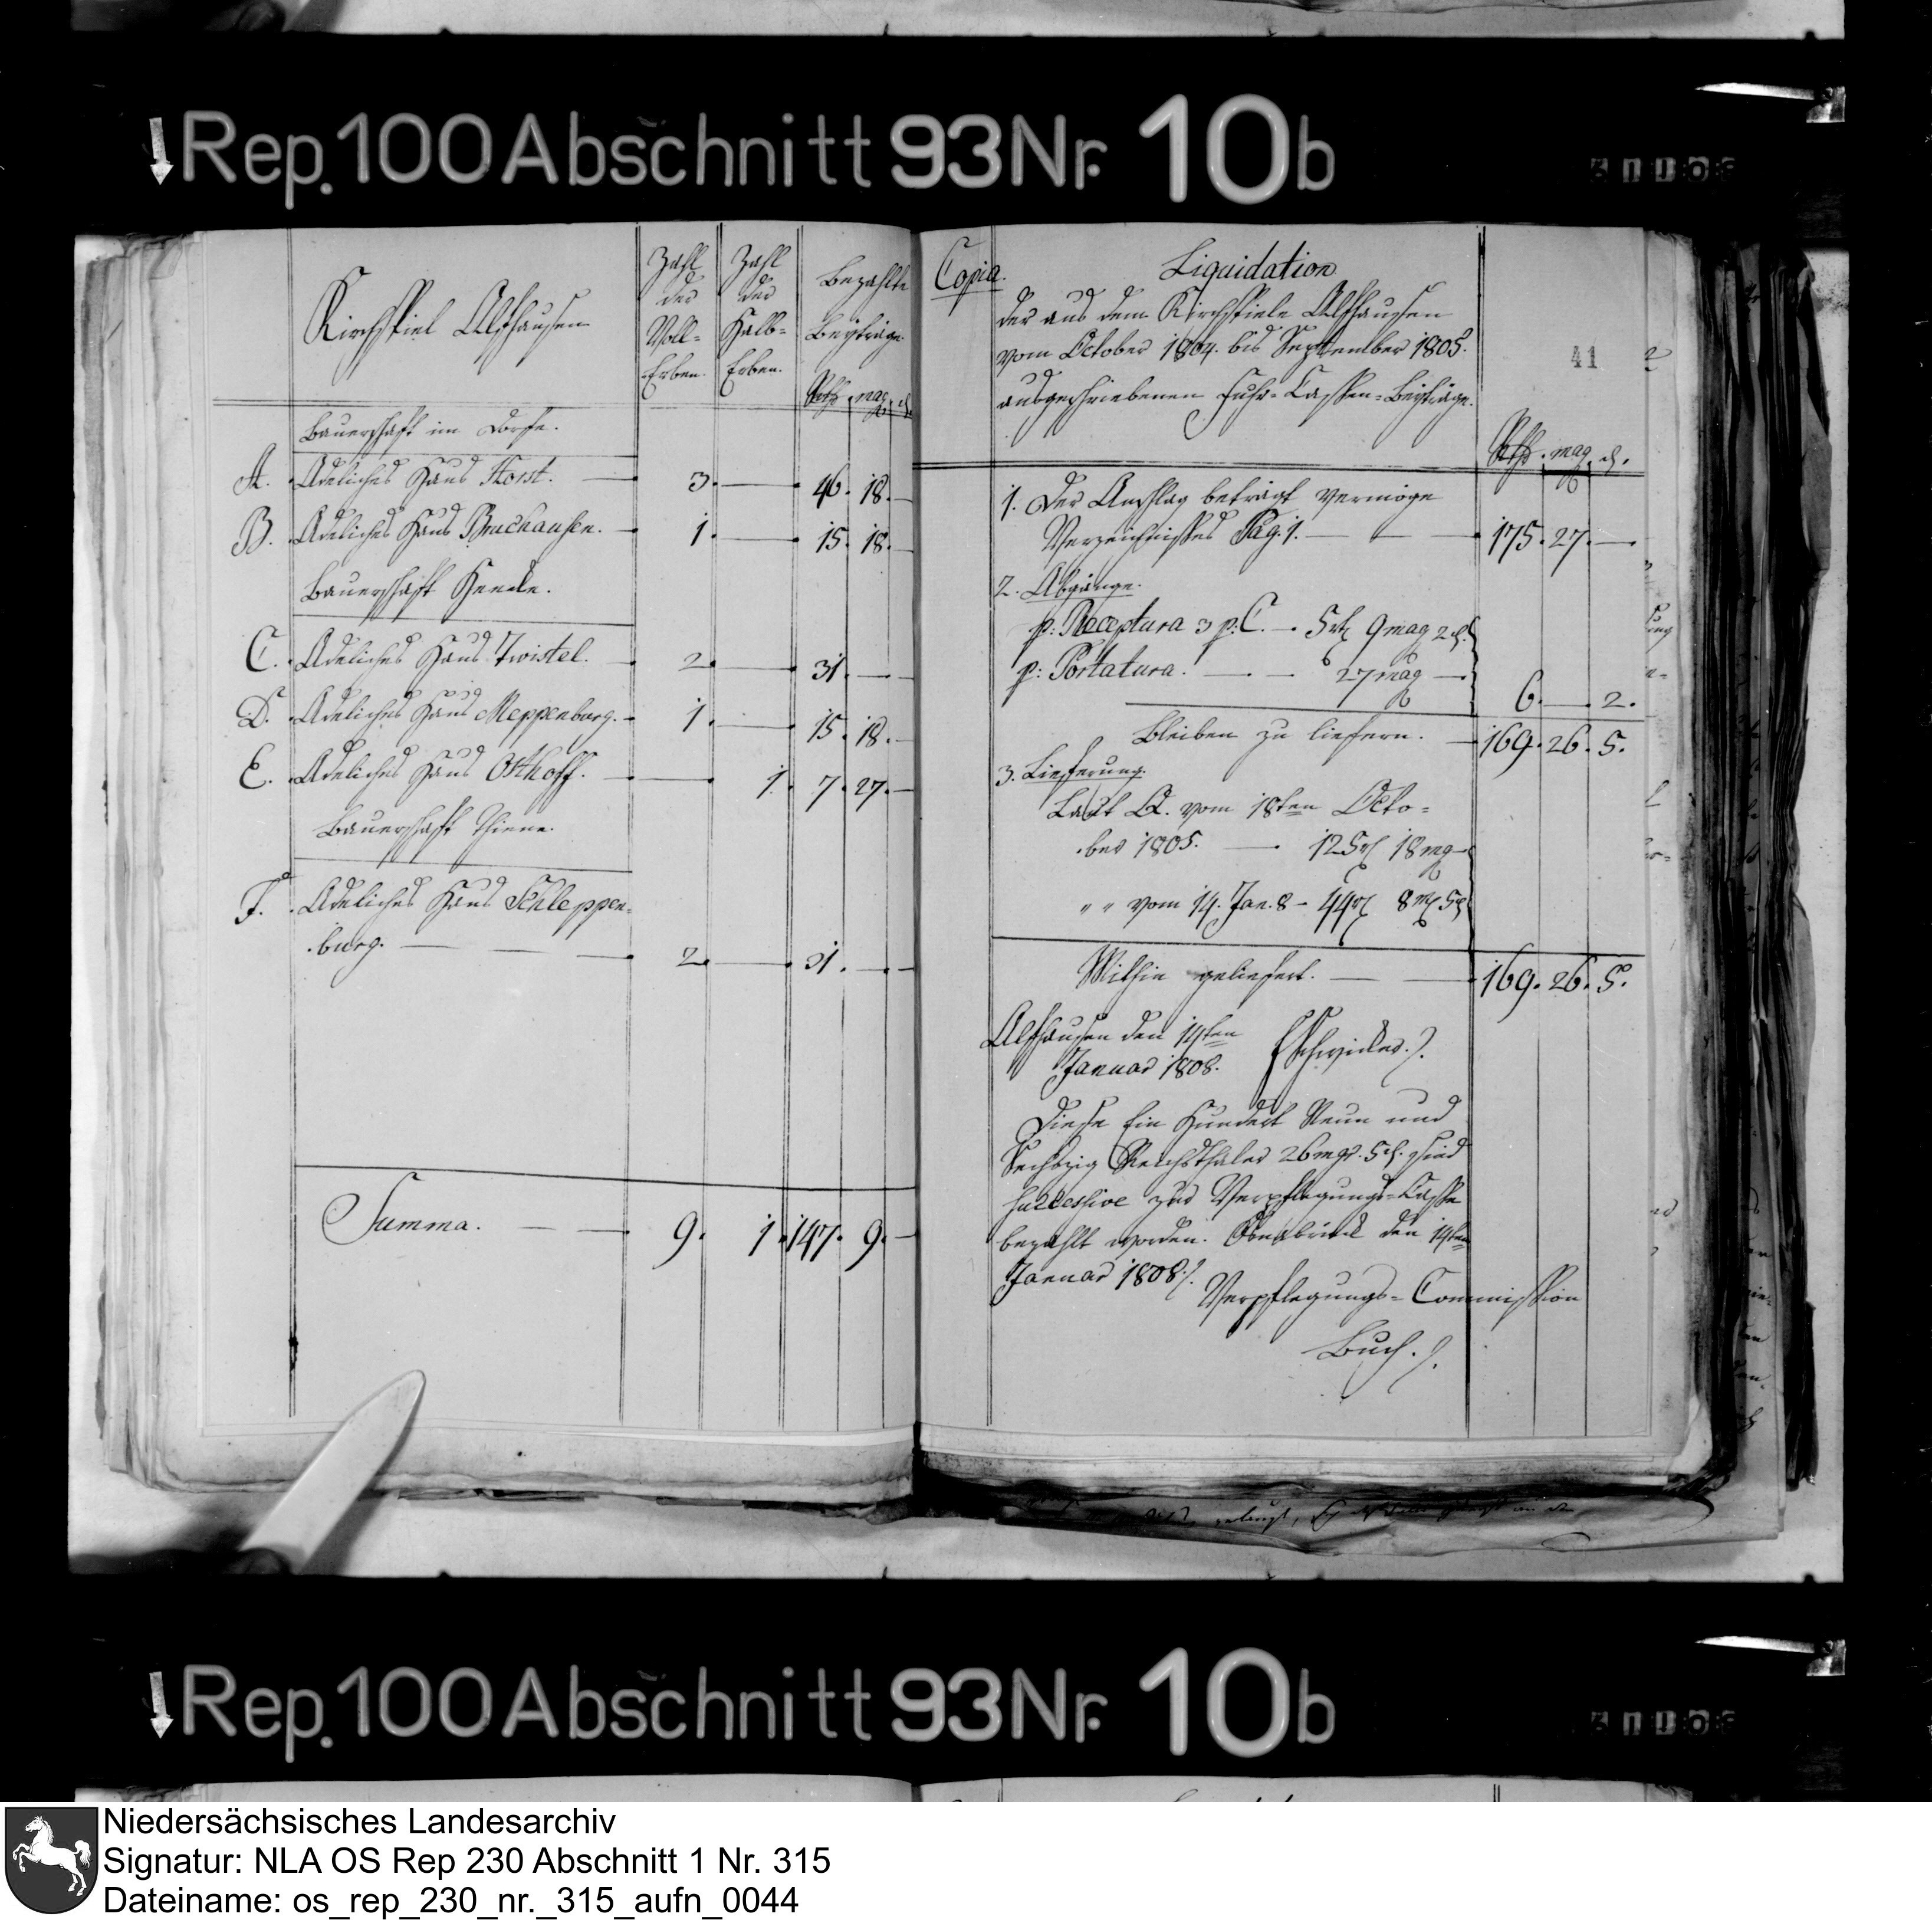 Rep. 100 Abschnitt 93 Nr. 10b
Kirchspiel Alfhausen
Zahl der Voll-Erben.
Zahl der Halb-Erben.
Bezahlte Beyträge.
Rthlr. mg. d.
Bauerschaft im Dorfe.
A. Adeliches Haus Horst. — 3. — 46. 18. —
B. Adeliches Haus Bruchausen. — 1. — 15. 18. —
Bauerschaft Heeke.
C. Adeliches Haus Twistel. — 2. — 31. — —
D. Adeliches Haus Neppenburg. — 1. — 15. 18. —
E. Adeliches Haus Osthoff. — — 1. 7. 27. —
Bauerschaft Thiene.
F. Adeliches Haus Schleppen-
burg. — — 2. — 31. — —
Summa. — — 9. 1. 147. 9. —
Copia.
Liquidation
der aus dem Kirchspiele Alfhausen
vom October 1804. bis September 1805.
ausgeschriebenen Fuhr-Cassen-Beyträge.
41
Rthlr. mg. d.
1. Der Anschlag beträgt vermöge
Verzeichnisses Pag. 1. — — 175. 27. —
2. Abgänge.
p: Receptura 3 p. C. — 5 rt 9 mg 2 d.
p: Portatura. — — 27 mg — 6. — 2.
Bleiben zu liefern. — 169. 26. 5.
3. Lieferung.
Laut Q. vom 18ten Octo-
ber 1805. — 125 rt 18 mg —
" " vom 14. Jan. 8 — 44 rt 8 mg 5 d
Mithin geliefert. — — 169. 26. 5.
Alfhausen den 14ten
Januar 1808.
Diese Ein Hundert Neun und
Sechszig Reichsthaler 26 mgr. 5 d. sind
successive zur Verpflegungs-Casse
bezahlt worden. Osnabrück den 14ten
Januar 1808.
Verpflegungs-Commission
Buch.
Rep. 100 Abschnitt 93 Nr. 10b
Niedersächsisches Landesarchiv
Signatur: NLA OS Rep 230 Abschnitt 1 Nr. 315
Dateiname: os_rep_230_nr._315_aufn_0044